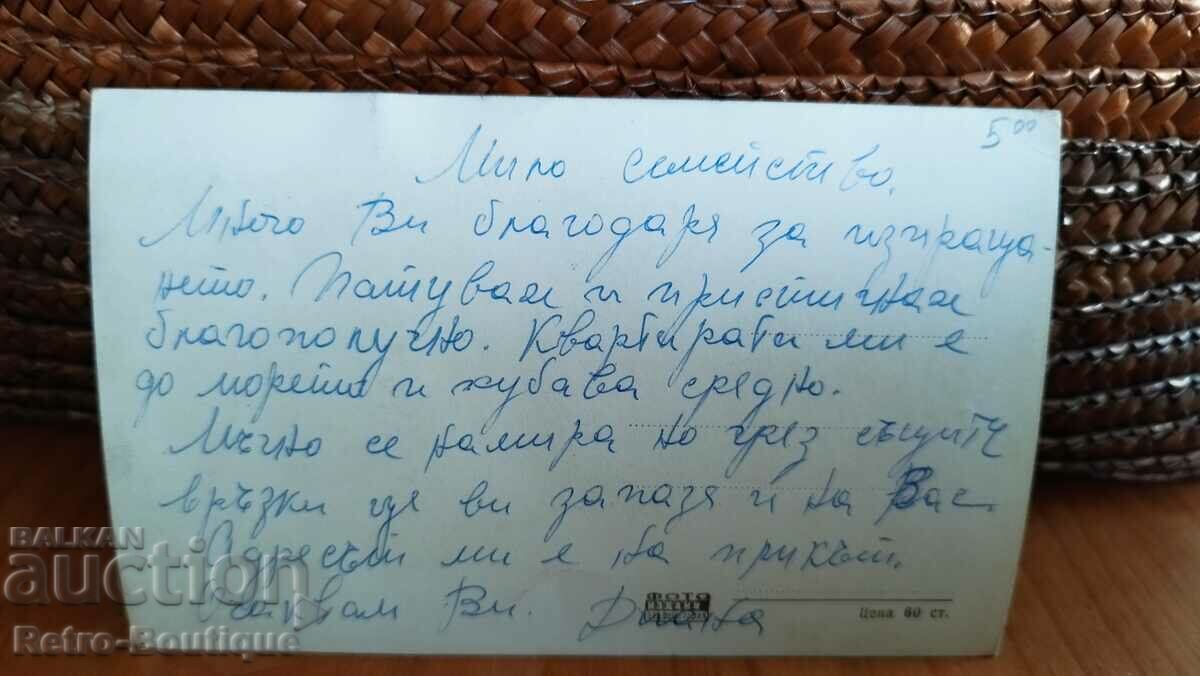 5⁰⁰
Мило семейство.
Много Ви благодаря за изпраща-
нето. Пътувах и пристигнах
благополучно. Квартирата ми е
до морето и хубава средно.
Мъчно се намира но чрез същите
връзки ще ви запазя и на Вас.
Адресът ми е на
Чаквам Ви. Диана
ФОТО
Цена 60 ст.
BALKAN
auction
Retro-Boutique